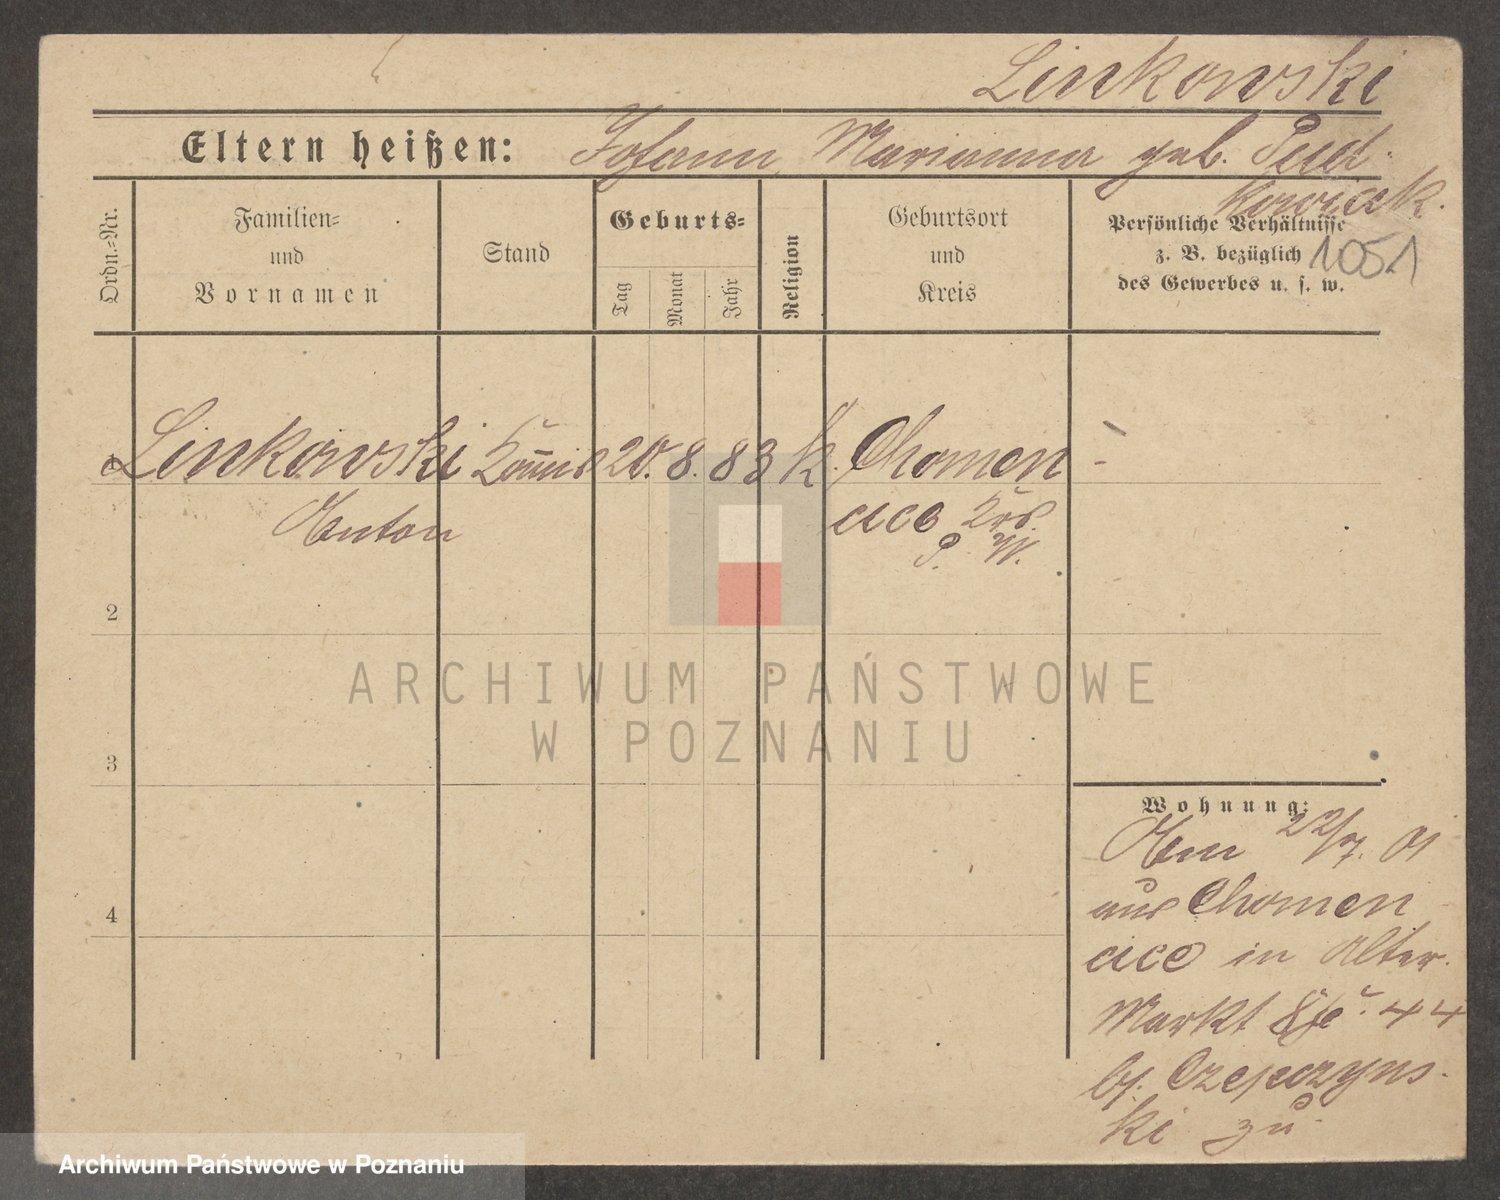 Linkowski
Eltern heißen: Johann, Marianna geb. Pud-
kowiak.
Ordn.=Nr.
Familien=
und
Vornamen
Stand
Geburts=
Tag
Monat
Jahr
Religion
Geburtsort
und
Kreis
Persönliche Verhältnisse
z. B. bezüglich
des Gewerbes u. s. w.
1051
1 Linkowski Kommis 20. 8. 83 k. Chomen
Anton
cice Krs.
P. W.
2
3
4
Wohnung:
Am 22/7. 01
aus Chomen
cice in Alter
Markt 44
bj. Czepczyns-
ki zu
ARCHIWUM PAŃSTWOWE
W POZNANIU
Archiwum Państwowe w Poznaniu